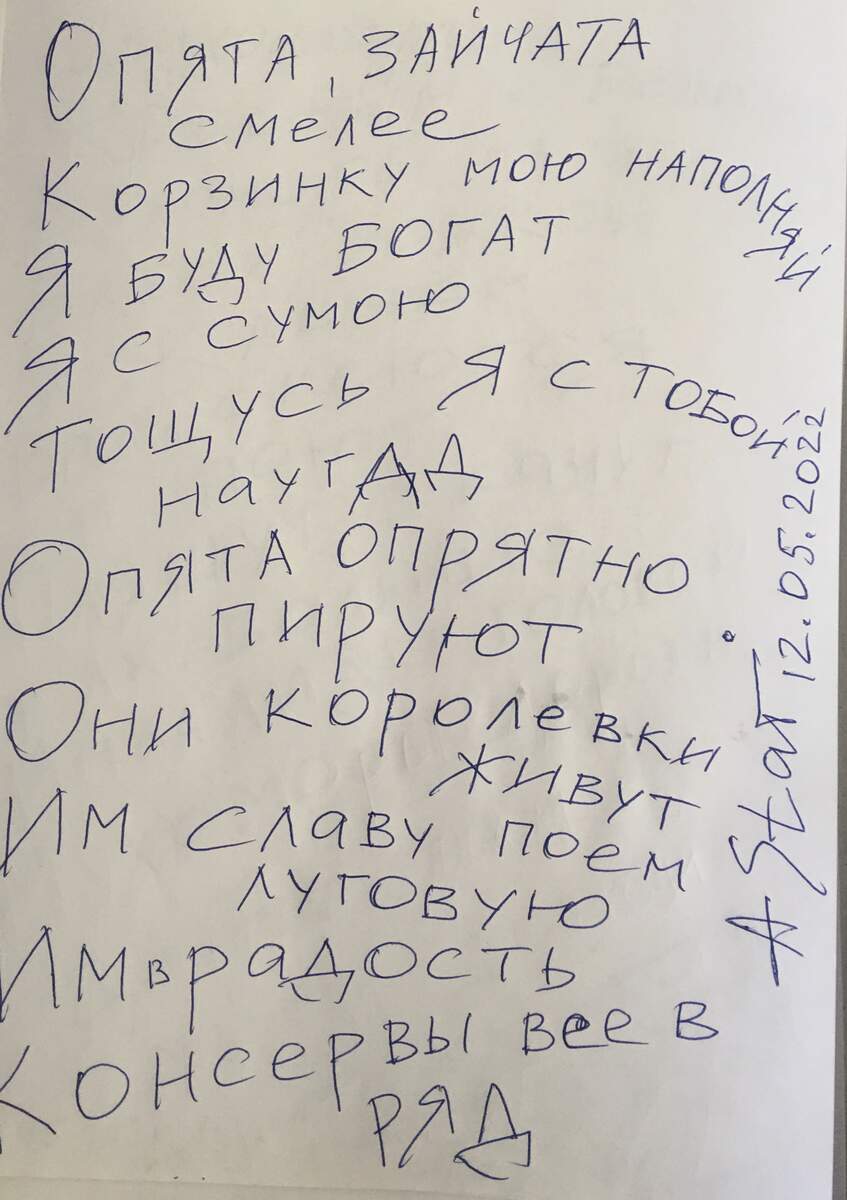 Опята, зайчата
смелее
Корзинку мою наполняй
Я буду богат
Я с сумою
Тощусь я с тобой
наугад
Опята опрятно
пируют
Они королевки
живут
Им славу поем
луговую
Им в радость
Консервы все в
ряд
AStaT 12.05.2022